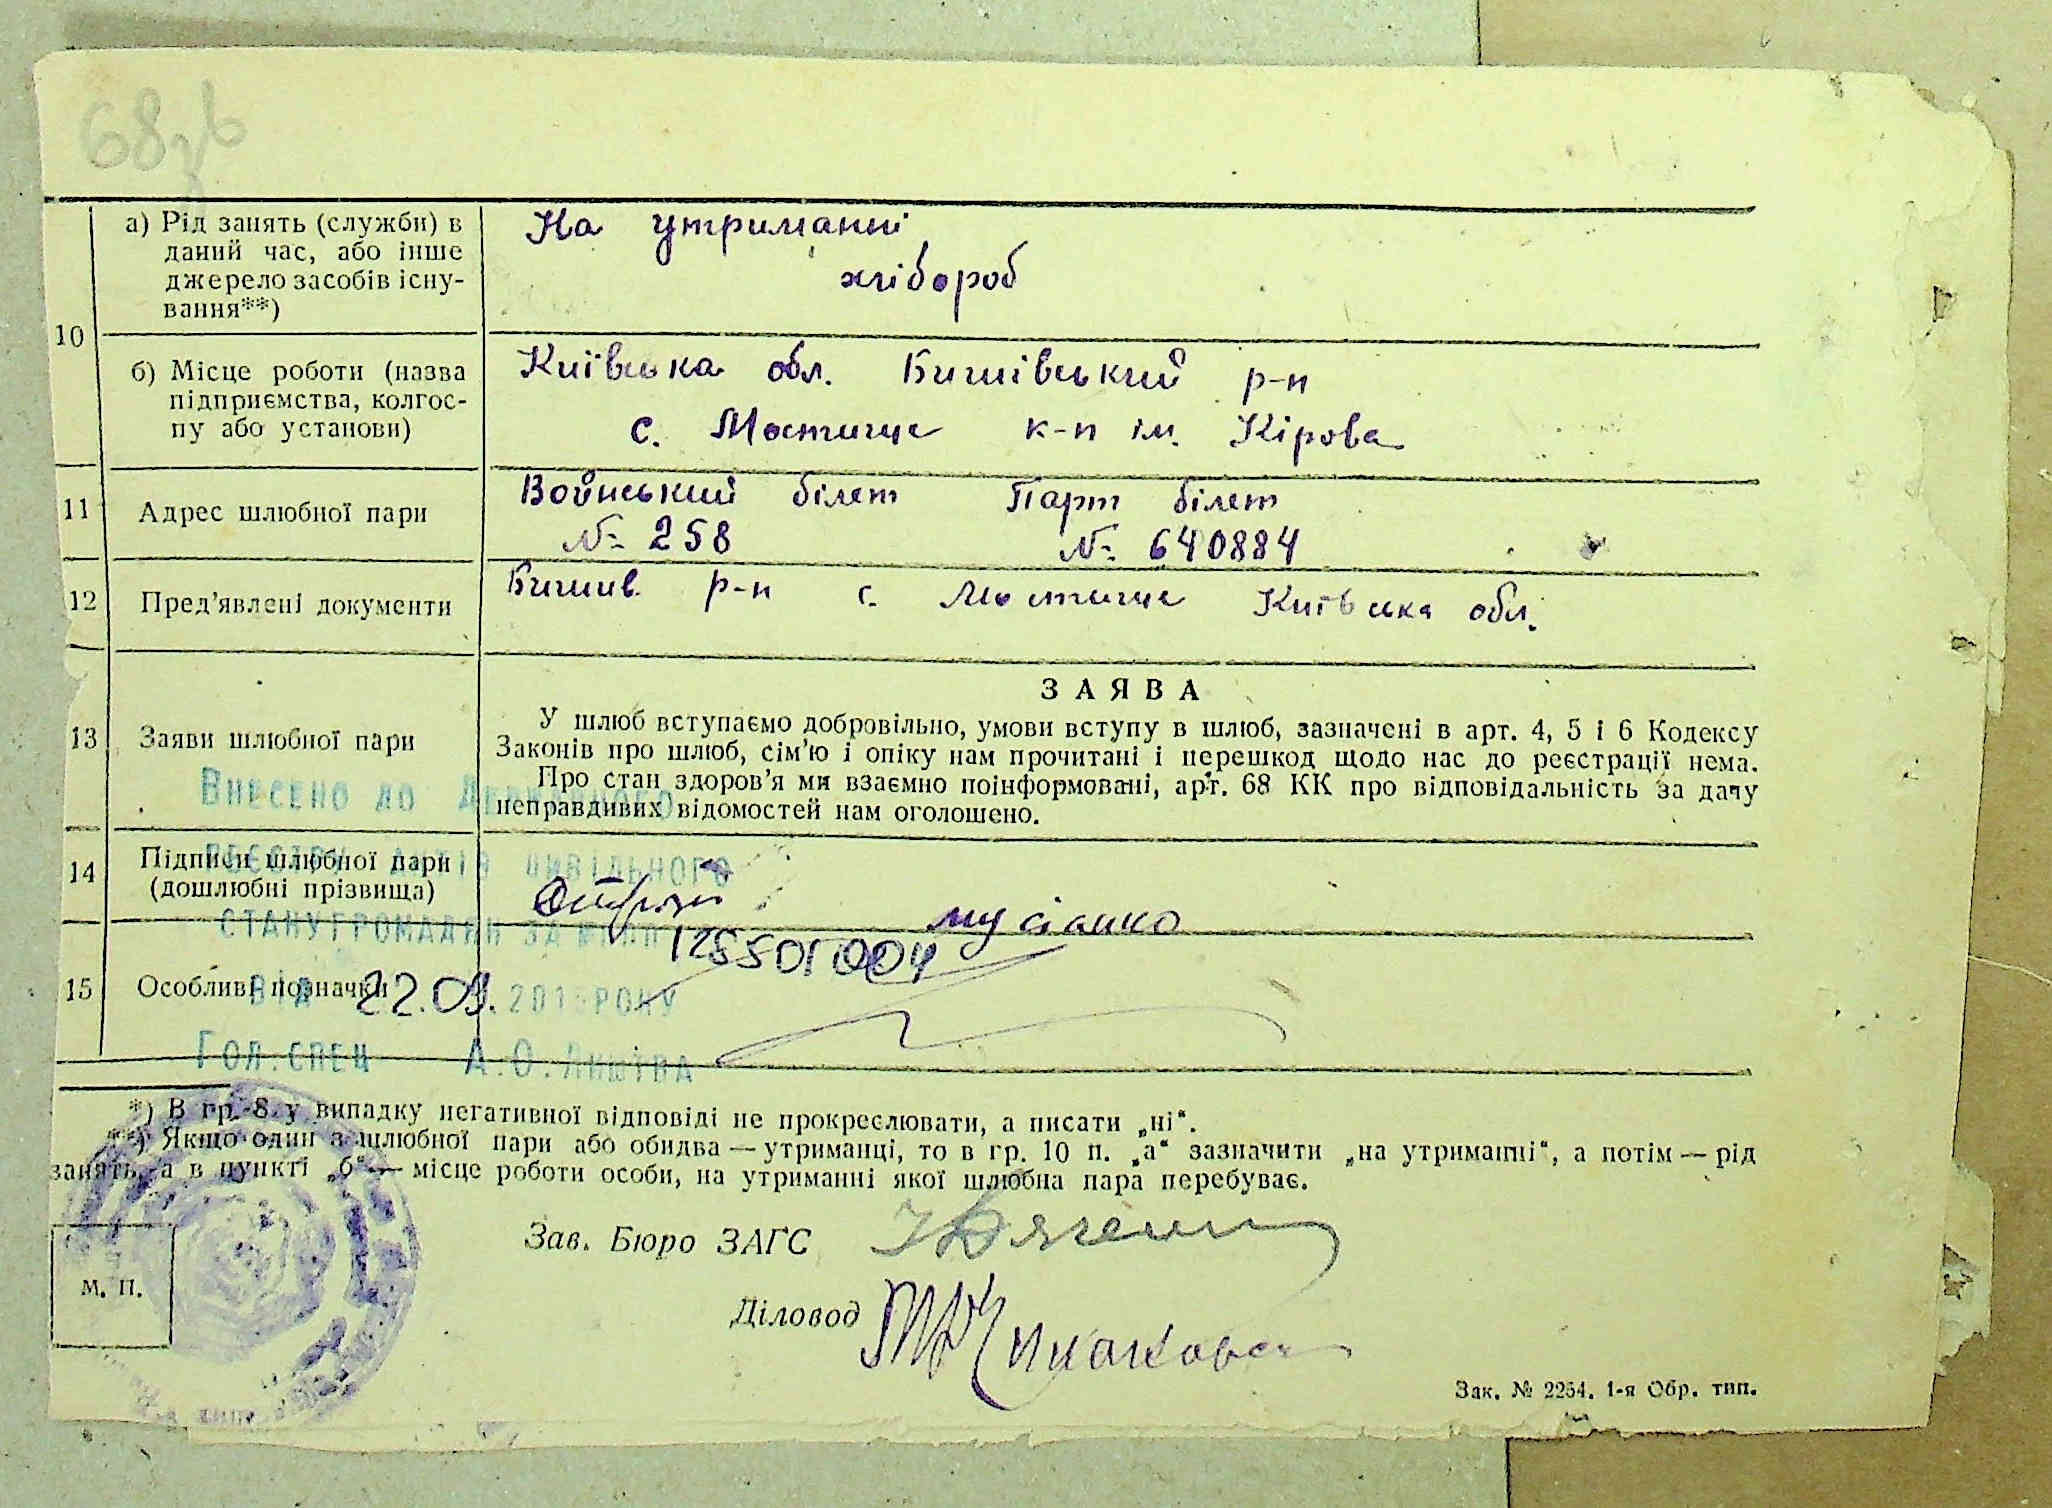 68зв
10
а) Рід занять (служби) в
даний час, або інше
джерело засобів існу-
вання**)
На утриманні
хлібороб
б) Місце роботи (назва
підприємства, колгос-
пу або установи)
Київська обл. Бишівський р-н
с. Мостище к-п ім. Кірова
11
Адрес шлюбної пари
Воїнський білет Парт білет
№ 258 № 640884
12
Пред'явлені документи
Бишив. р-н с. Мостище Київська обл.
13
Заяви шлюбної пари
ЗАЯВА
У шлюб вступаємо добровільно, умови вступу в шлюб, зазначені в арт. 4, 5 і 6 Кодексу
Законів про шлюб, сім'ю і опіку нам прочитані і перешкод щодо нас до реєстрації нема.
Про стан здоров'я ми взаємно поінформовані, арт. 68 КК про відповідальність за дачу
неправдивих відомостей нам оголошено.
Внесено до Державного
14
Підписи шлюбної пари
(дошлюбні прізвища)
реєстру актів цивільного
мусіанко
стану громадян за
125501004
15
Особливі позначки
від 22.09. 201 року
Гол. спец А.О. Лиштва
*) В гр. 8 у випадку негативної відповіді не прокреслювати, а писати „ні“.
**) Якщо один з шлюбної пари або обидва — утриманці, то в гр. 10 п. „а“ зазначити „на утриманні“, а потім — рід
занять, а в пункті „б“ — місце роботи особи, на утриманні якої шлюбна пара перебуває.
Зав. Бюро ЗАГС
М. П.
Діловод
Зак. № 2254. 1-я Обр. тип.